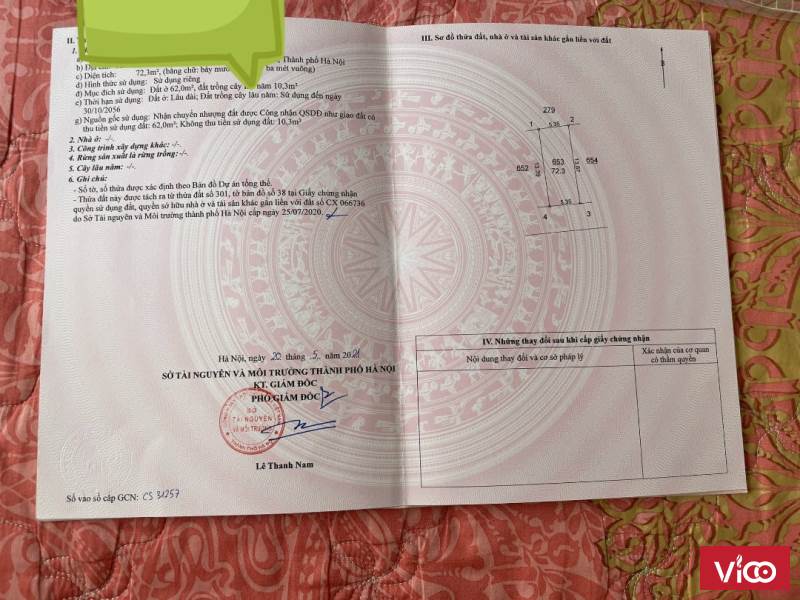 II.
b) Địa
Thành phố Hà Nội
c) Diện tích: 72,3m², (bằng chữ: bảy mươi ba mét vuông)
d) Hình thức sử dụng: Sử dụng riêng
đ) Mục đích sử dụng: Đất ở 62,0m², đất trồng cây năm 10,3m²
e) Thời hạn sử dụng: Đất ở: Lâu dài; Đất trồng cây lâu năm: Sử dụng đến ngày
30/10/2056
g) Nguồn gốc sử dụng: Nhận chuyển nhượng đất được Công nhận QSDĐ như giao đất có
thu tiền sử dụng đất: 62,0m²; Không thu tiền sử dụng đất: 10,3m²
2. Nhà ở: -/-.
3. Công trình xây dựng khác: -/-.
4. Rừng sản xuất là rừng trồng: -/-.
5. Cây lâu năm: -/-.
6. Ghi chú:
- Số tờ, số thửa được xác định theo Bản đồ Dự án tổng thể.
- Thửa đất này được tách ra từ thửa đất số 301, tờ bản đồ số 38 tại Giấy chứng nhận
quyền sử dụng đất, quyền sở hữu nhà ở và tài sản khác gắn liền với đất số CX 066736
do Sở Tài nguyên và Môi trường thành phố Hà Nội cấp ngày 25/07/2020.
Hà Nội, ngày 20 tháng 5 năm 2021
SỞ TÀI NGUYÊN VÀ MÔI TRƯỜNG THÀNH PHỐ HÀ NỘI
KT. GIÁM ĐỐC
PHÓ GIÁM ĐỐC
SỞ
TÀI NGUYÊN
VÀ MÔI TRƯỜNG
Lê Thanh Nam
Số vào sổ cấp GCN: CS 31257
III. Sơ đồ thửa đất, nhà ở và tài sản khác gắn liền với đất
B
279
1 5.35 2
652 653 654
72.3
4 5.35 3
IV. Những thay đổi sau khi cấp giấy chứng nhận
Nội dung thay đổi và cơ sở pháp lý
Xác nhận của cơ quan
có thẩm quyền
ViCO